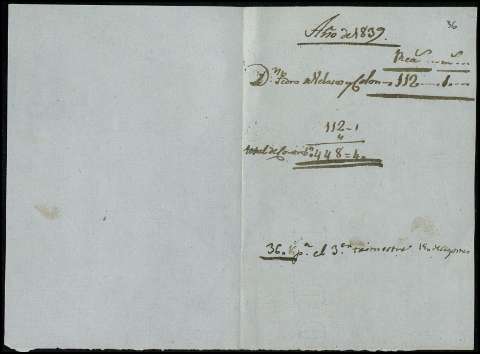 36
Año de 1839.
Rea.s ... m.s ...
D.n Pedro de Velasco y Colon 112 ... 1 ...
112 - 1
4
total de 448 - 4.
36. p.a el 3.er trimestre